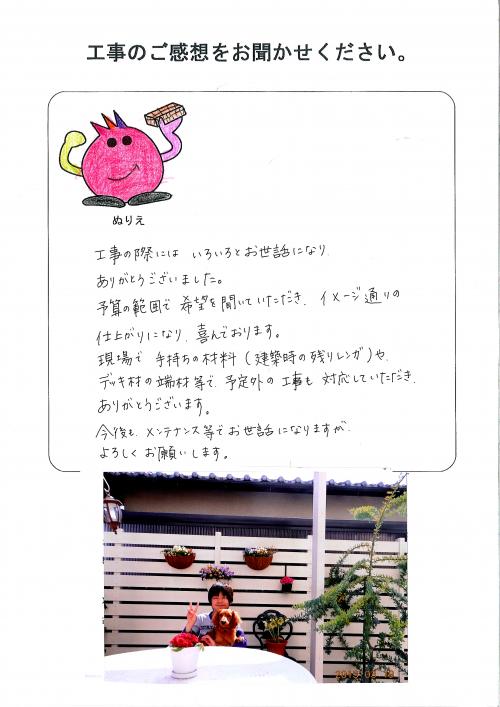 工事のご感想をお聞かせください。
ぬりえ
工事の際には いろいろとお世話になり、
ありがとうございました。
予算の範囲で 希望を聞いていただき、イメージ通りの
仕上がりになり、喜んでおります。
現場で 手持ちの材料(建築時の残りレンガ)や、
デッキ材の端材等で、予定外の工事も 対応していただき、
ありがとうございます。
今後も、メンテナンス等でお世話になりますが、
よろしくお願いします。